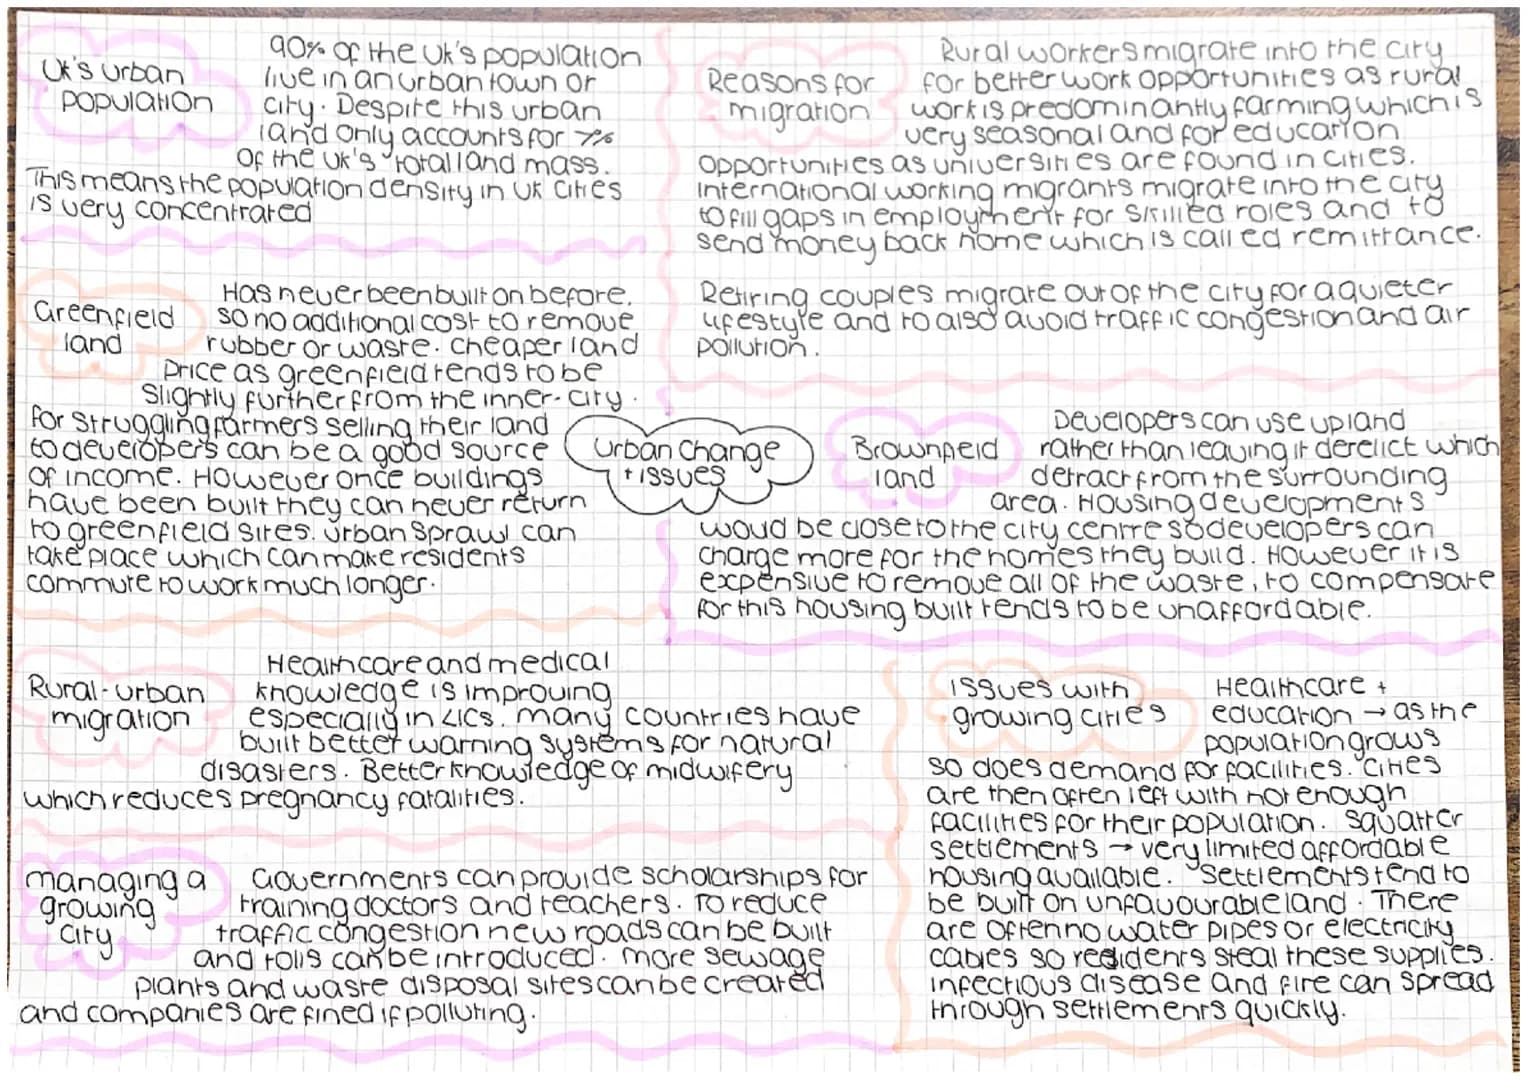 UK's urban
population
90% of the UK's population
live in an urban town or
city. Despite this urban
land only accounts for 7%
of the UK's total land mass.
This means the population density in UK cities
is very concentrated
Reasons for
migration
Rural workers migrate into the city
for better work opportunities as rural
work is predominantly farming which is
very seasonal and for education
opportunities as universities are found in cities.
International working migrants migrate into the city
to fill gaps in employment for skilled roles and to
send money back home which is called remittance.
Retiring couples migrate out of the city for a quieter
lifestyle and to also avoid traffic congestion and air
pollution.
Greenfield
land
Has never been built on before.
so no additional cost to remove
rubber or waste. Cheaper land
price as greenfield tends to be
slightly further from the inner-city.
for struggling farmers selling their land
to developers can be a good source
of income. However once buildings
have been built they can never return
to greenfield sites. Urban sprawl can
take place which can make residents
commute to work much longer.
Urban Change
+ issues
Brownfield
land
Developers can use up land
rather than leaving it derelict which
detract from the surrounding
area. Housing developments
woud be close to the city centre so developers can
charge more for the homes they build. However it is
expensive to remove all of the waste, to compensate
for this housing built tends to be unaffordable.
Rural-urban
migration
Healthcare and medical
knowledge is improving
especially in LICs. many countries have
built better warning systems for natural
disasters. Better knowledge of midwifery
which reduces pregnancy fatalities.
Issues with
growing cities
Healthcare +
education → as the
population grows
so does demand for facilities. Cities
are then often left with not enough
facilities for their population. Squatter
settlements → very limited affordable
housing available. Settlements tend to
be built on unfavourable land. There
are often no water pipes or electricity
cables so residents steal these supplies.
infectious disease and fire can spread
through settlements quickly.
managing a
growing
city
Governments can provide scholarships for
training doctors and teachers. To reduce
traffic congestion new roads can be built
and tolls can be introduced. more sewage
plants and waste disposal sites can be created
and companies are fined if polluting.